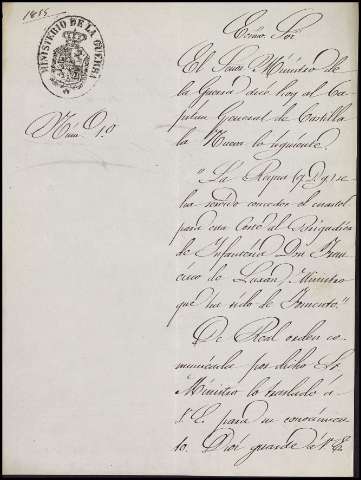 1855
MINISTERIO DE LA GUERRA
Núm. 10
Excmo. Sor.
El Señor Ministro de
la Guerra dice hoy al Ca-
pitan General de Castilla
la Nueva lo siguiente:
"La Reyna (q. D. g.) se
ha servido conceder el cuartel
para esta Corte al Brigadier
de Infantería Don Fran-
cisco de Luxan, Ministro
que ha sido de Fomento."
De Real orden co-
municada por dicho Sr.
Ministro lo traslado á
V. E. para su conocimien-
to. Dios guarde á V. E.